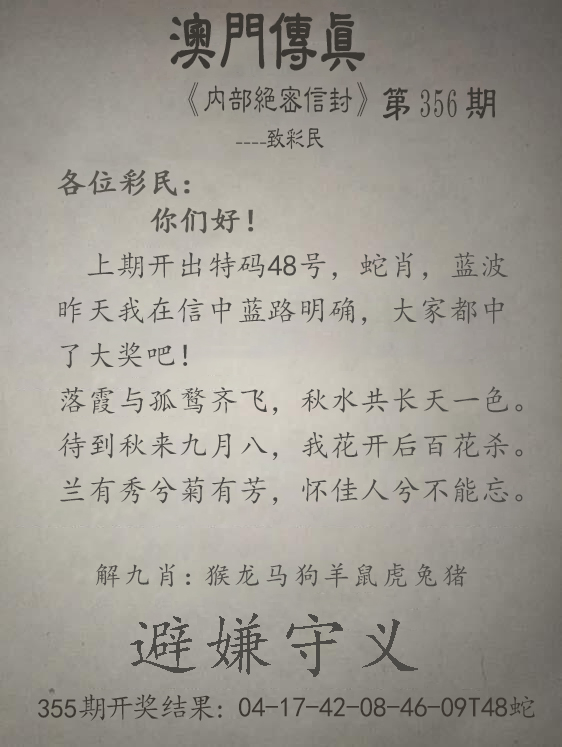 澳門傳眞
《内部絕密信封》第356期
----致彩民
各位彩民：
你们好！
上期开出特码48号，蛇肖，蓝波
昨天我在信中蓝路明确，大家都中
了大奖吧！
落霞与孤鹜齐飞，秋水共长天一色。
待到秋来九月八，我花开后百花杀。
兰有秀兮菊有芳，怀佳人兮不能忘。
解九肖：猴龙马狗羊鼠虎兔猪
避嫌守义
355期开奖结果：04-17-42-08-46-09T48蛇